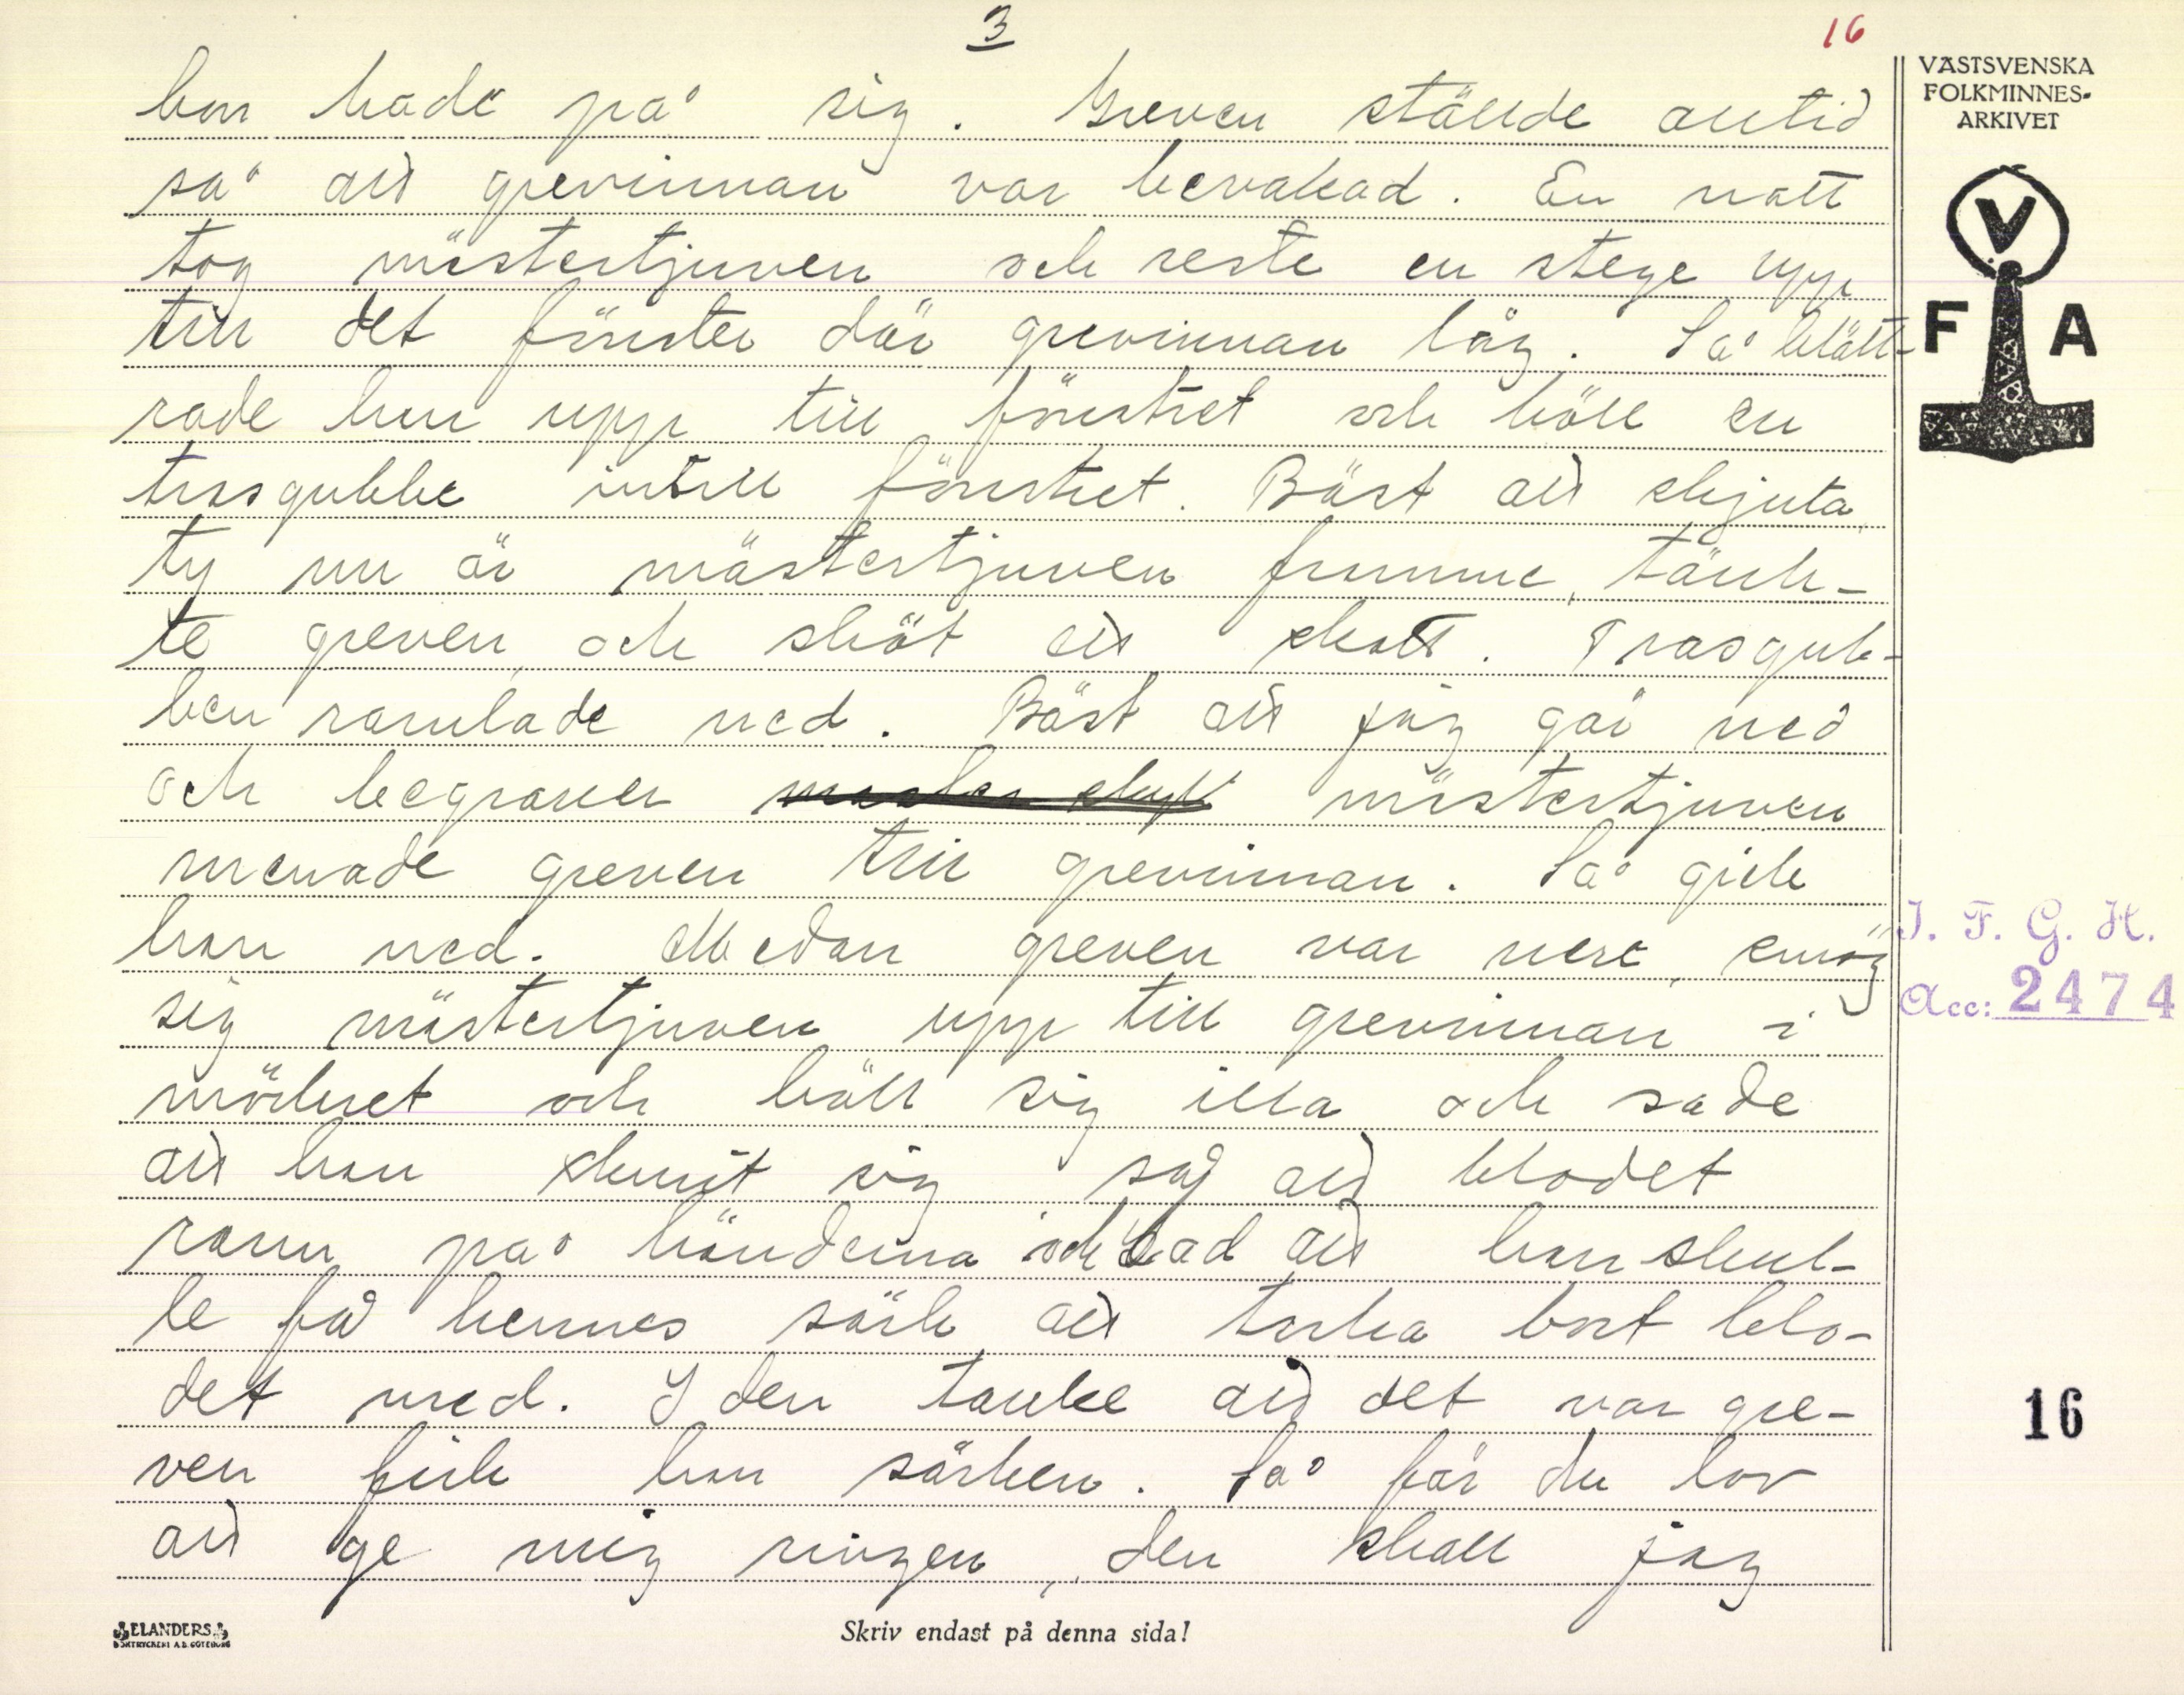 3
16
VÄSTSVENSKA
FOLKMINNES-
ARKIVET
V
F A
hon hade på sig. Greven ställde alltid
så att grevinnan var bevakad. En natt
tog mästertjuven och reste en stege upp
till det fönster där grevinnan låg. Så klätt-
rade han upp till fönstret och höll en
trasgubbe intill fönstret. Bäst att skjuta,
ty nu är mästertjuven framme, tänk-
te greven, och sköt ett skott. Trasgub-
ben ramlade ned. Bäst att jag går ned
och begraver mästertjuven
menade greven till grevinnan. Så gick
han ned. Medan greven var nere, smög
sig mästertjuven upp till grevinnan i
mörkret och höll sig illa och sade
att han skurit sig sad att blodet
rann på händerna och bad att han skul-
le få hennes särk att torka bort blo-
det med. I den tanke att det var gre-
ven fick han särken. Så får du lov
att ge mig ringen, den skall jag
I. F. G. H.
Acc: 2474
16
ELANDERS
BOKTRYCKERI A.B. GÖTEBORG
Skriv endast på denna sida!